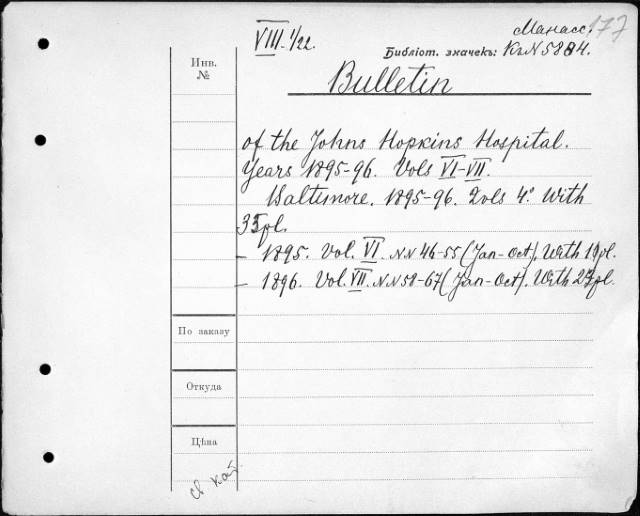 177
Манасс.
VIII. 1/22.
Библіот. значекъ: КаN 5884.
Инв.
№
Bulletin
of the Johns Hopkins Hospital.
Years 1895-96. Vols VI-VII.
Baltimore. 1895-96. 2vols 4°. With
35pl.
- 1895. Vol. VI. N.N 46-55 (Jan-Oct). With 1 pl.
- 1896. Vol. VII. N.N 58-67 (Jan-Oct). With pl.
По заказу
Откуда
Цѣна
св кат.